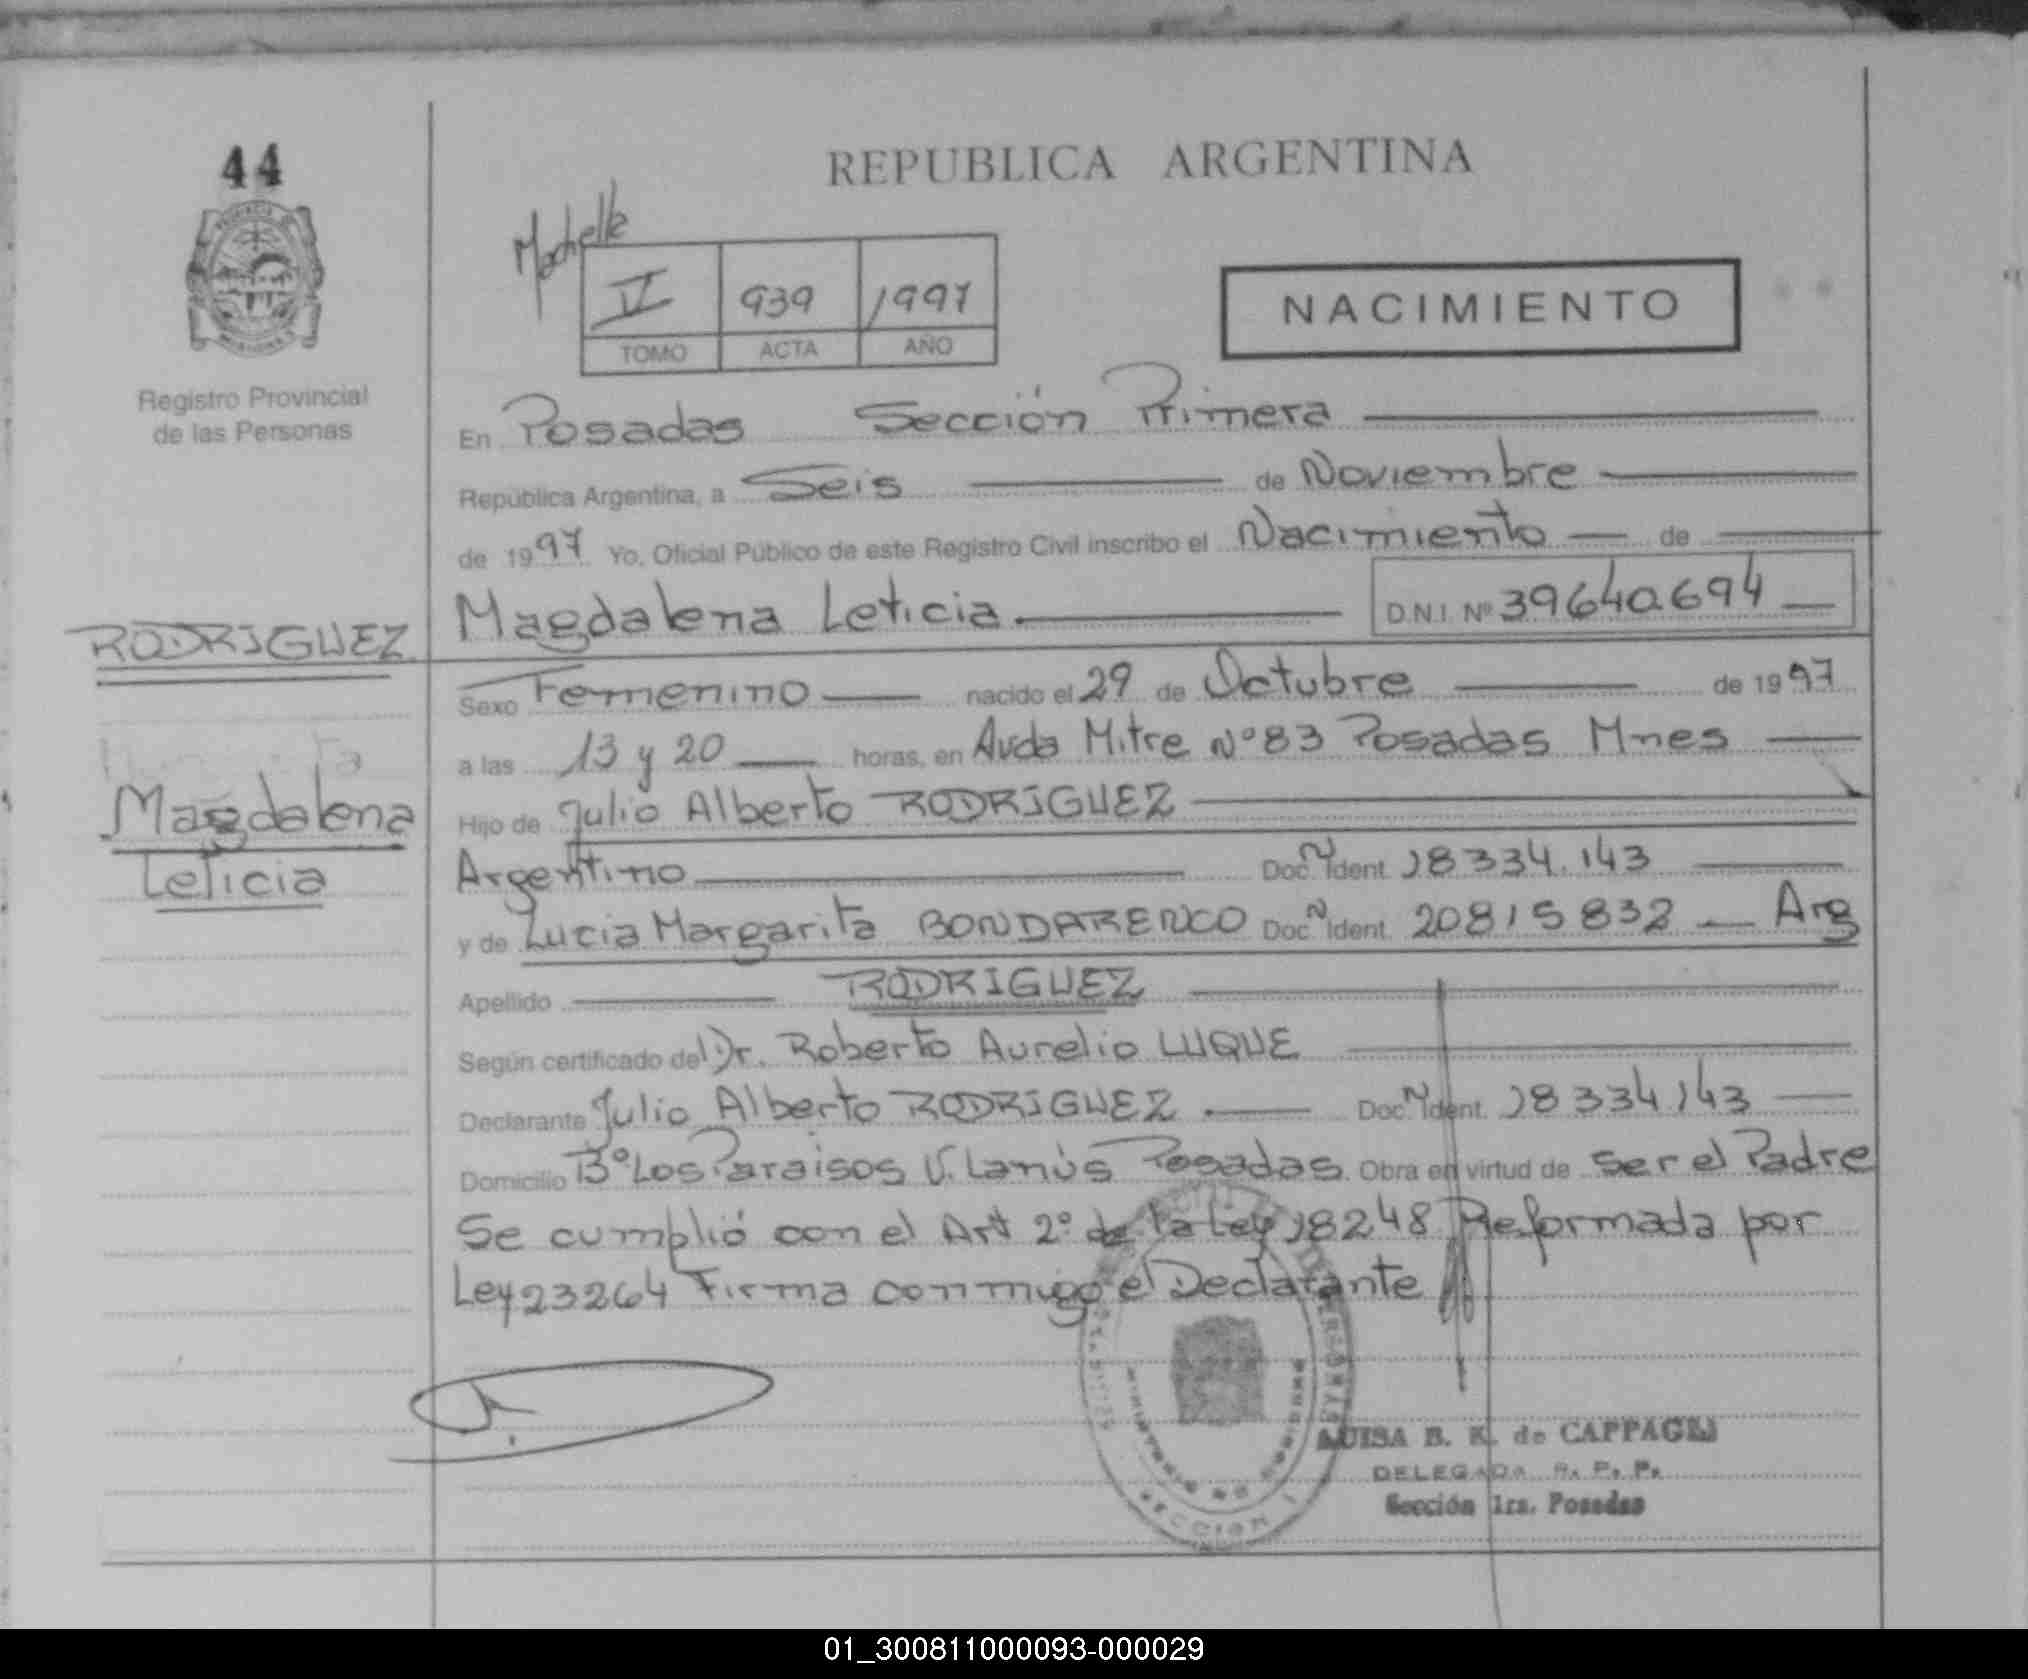 44
REPUBLICA ARGENTINA
IV 939 1997
TOMO ACTA AÑO
NACIMIENTO
Registro Provincial
de las Personas
En Posadas Sección Primera
República Argentina, a Seis de Noviembre
de 1997 Yo, Oficial Público de este Registro Civil inscribo el Nacimiento de
Magdalena Leticia D.N.I. Nº 39640694
RODRIGUEZ
Sexo Femenino nacido el 29 de Octubre de 1997
a las 13 y 20 horas, en Avda Mitre Nº 83 Posadas Mnes
Magdalena
Leticia
Hijo de Julio Alberto RODRIGUEZ
Argentino Doc. N Ident. 18334.143
y de Lucia Margarita BONDARENCO Doc. N Ident. 20815832 Arg
Apellido RODRIGUEZ
Según certificado del Dr. Roberto Aurelio LUQUE
Declarante Julio Alberto RODRIGUEZ Doc. N Ident. 18334143
Domicilio Bº Los Paraisos V. Lanús Posadas. Obra en virtud de ser el Padre
Se cumplió con el Art 2º de la Ley 18248 Reformada por
Ley 23264 Firma conmigo el Declarante
LUISA B. K. de CAPPAGLI
DELEGADA R. P. P.
Sección 1ra. Posadas
01_300811000093-000029